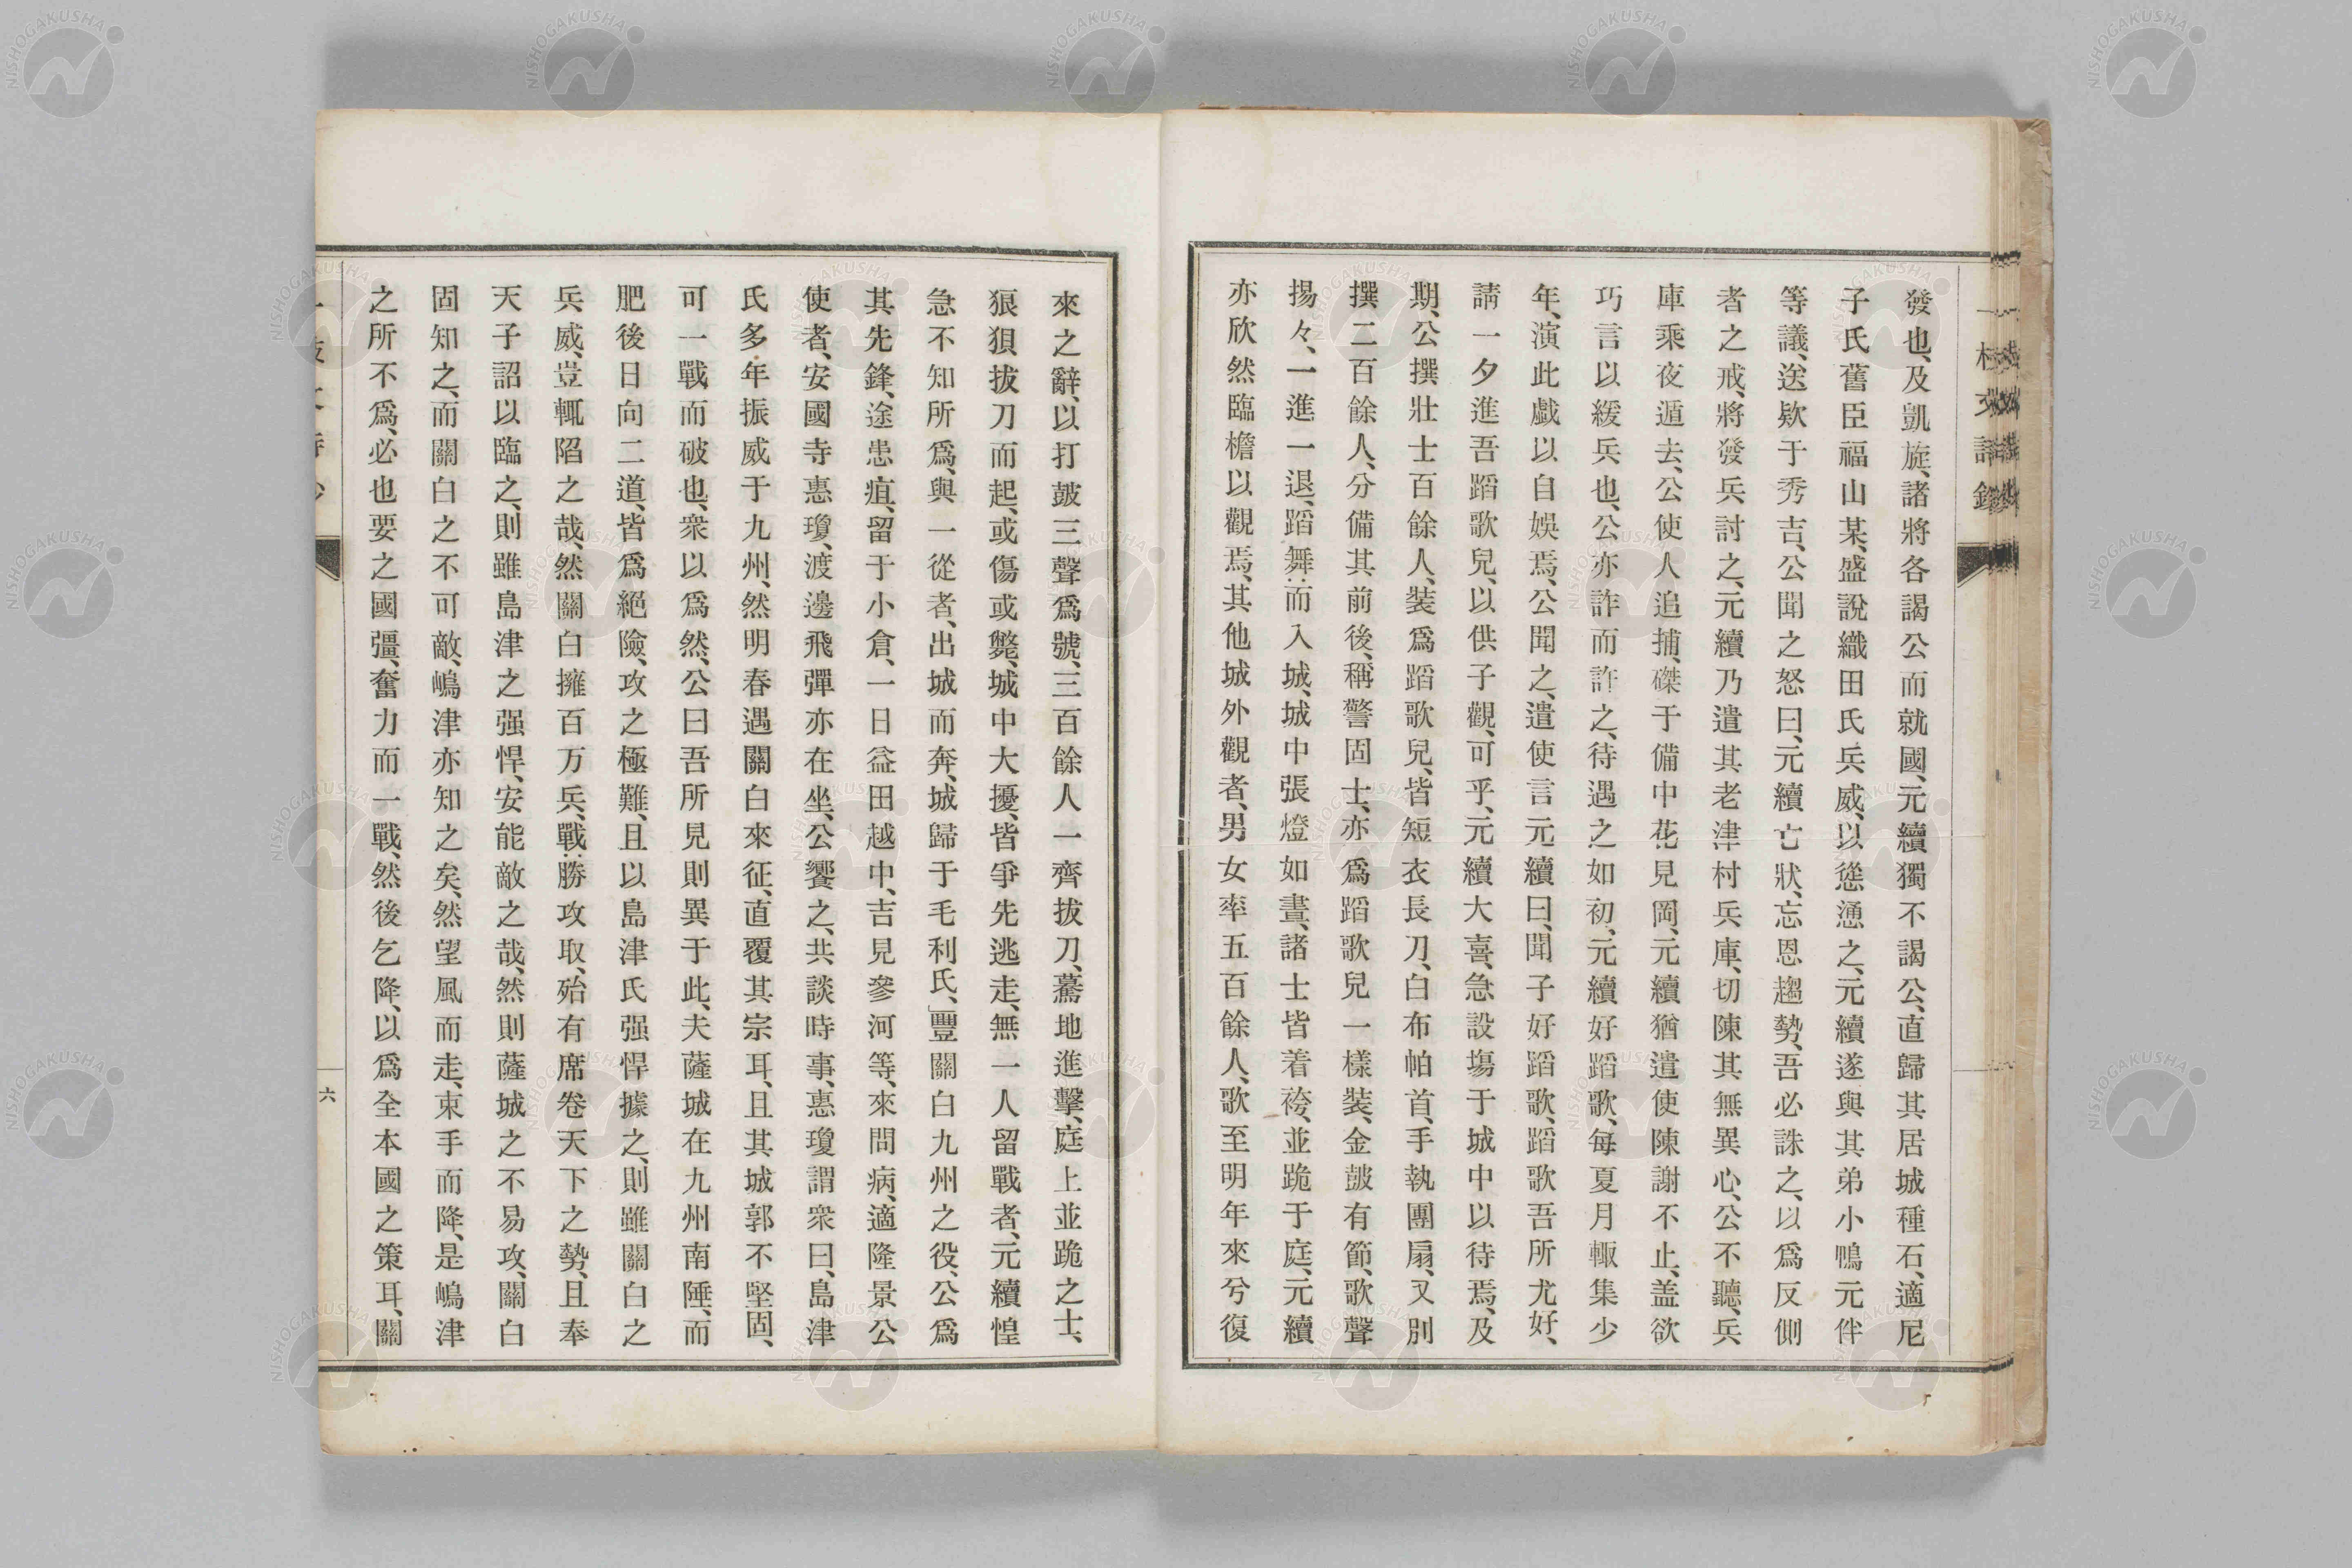 發也、及凱旋、諸將各謁公而就國、元續獨不謁公、直歸其居城種石、適尼
子氏舊臣福山某、盛說織田氏兵威、以慫慂之、元續遂與其弟小鴨元伴
等議、送欵于秀吉、公聞之怒曰、元續亡狀、忘恩趨勢、吾必誅之、以爲反側
者之戒、將發兵討之、元續乃遣其老津村兵庫、切陳其無異心、公不聽、兵
庫乘夜遁去、公使人追捕、磔于備中花見岡、元續猶遣使陳謝不止、盖欲
巧言以緩兵也、公亦詐而許之、待遇之如初、元續好蹈歌、每夏月輙集少
年、演此戯以自娛焉、公聞之、遣使言元續曰、聞子好蹈歌、蹈歌吾所尤好、
請一夕進吾蹈歌兒、以供子觀、可乎、元續大喜、急設塲于城中以待焉、及
期、公撰壯士百餘人、裝爲蹈歌兒、皆短衣長刀、白布帕首、手執團扇、又別
撰二百餘人、分備其前後、稱警固士、亦爲蹈歌兒一樣裝、金皷有節、歌聲
揚々、一進一退、蹈舞而入城、城中張燈如晝、諸士皆着袴、並跪于庭、元續
亦欣然臨檐以觀焉、其他城外觀者、男女率五百餘人、歌至明年來兮復
來之辭、以打皷三聲爲號、三百餘人一齊拔刀、驀地進擊、庭上並跪之士、
狼狽拔刀而起、或傷或斃、城中大擾、皆爭先逃走、無一人留戰者、元續惶
急不知所爲、與一從者、出城而奔、城歸于毛利氏、」豐關白九州之役、公爲
其先鋒、途患疽、留于小倉、一日益田越中、吉見參河等、來問病、適隆景公
使者、安國寺惠瓊、渡邊飛彈亦在坐、公饗之、共談時事、惠瓊謂衆曰、島津
氏多年振威于九州、然明春遇關白來征、直覆其宗耳、且其城郭不堅固、
可一戰而破也、衆以爲然、公曰吾所見則異于此、夫薩城在九州南陲、而
肥後日向二道、皆爲絕險、攻之極難、且以島津氏强悍據之、則雖關白之
兵威、豈輙陷之哉、然關白擁百万兵、戰勝攻取、殆有席卷天下之勢、且奉
天子詔以臨之、則雖島津之强悍、安能敵之哉、然則薩城之不易攻、關白
固知之、而關白之不可敵、嶋津亦知之矣、然望風而走、束手而降、是嶋津
之所不爲、必也要之國彊、奮力而一戰、然後乞降、以爲全本國之策耳、關
六
NISHOGAKUSHA